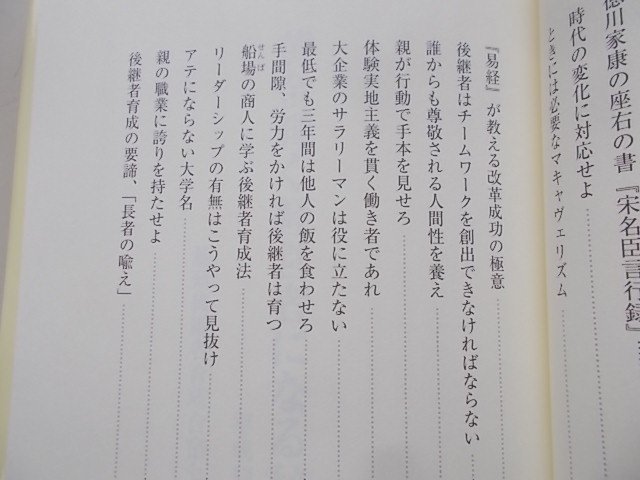 徳川家康の座右の書『宋名臣言行録』
時代の変化に対応せよ
ときには必要なマキャヴェリズム
『易経』が教える改革成功の極意
後継者はチームワークを創出できなければならない
誰からも尊敬される人間性を養え
親が行動で手本を見せろ
体験実地主義を貫く働き者であれ
大企業のサラリーマンは役に立たない
最低でも三年間は他人の飯を食わせろ
手間隙、労力をかければ後継者は育つ
船場の商人に学ぶ後継者育成法
リーダーシップの有無はこうやって見抜け
アテにならない大学名
親の職業に誇りを持たせよ
後継者育成の要諦、「長者の喩え」